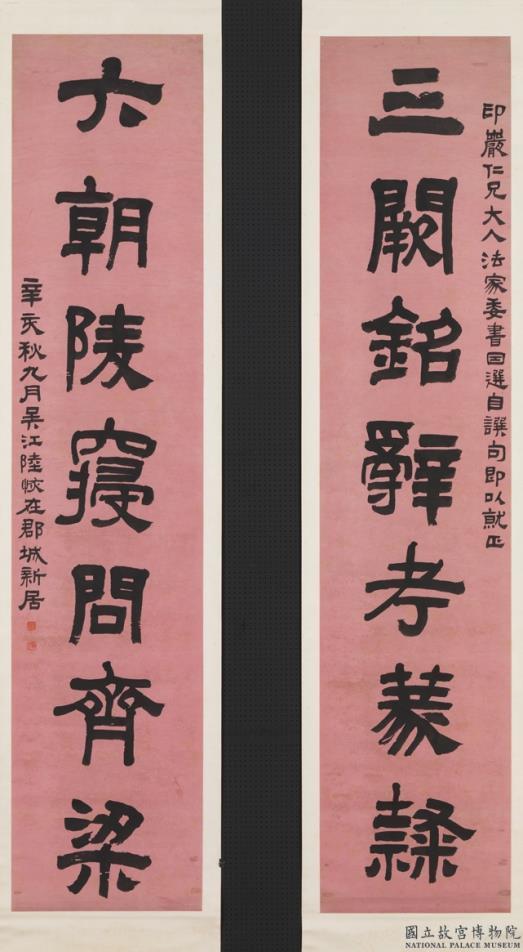 印巖仁兄大人法家委書因選自譔句即以就正
三闕銘辭考篆隸
六朝陵寢問齊梁
辛亥秋九月吳江陸恢在郡城新居
國立故宮博物院
NATIONAL PALACE MUSEUM